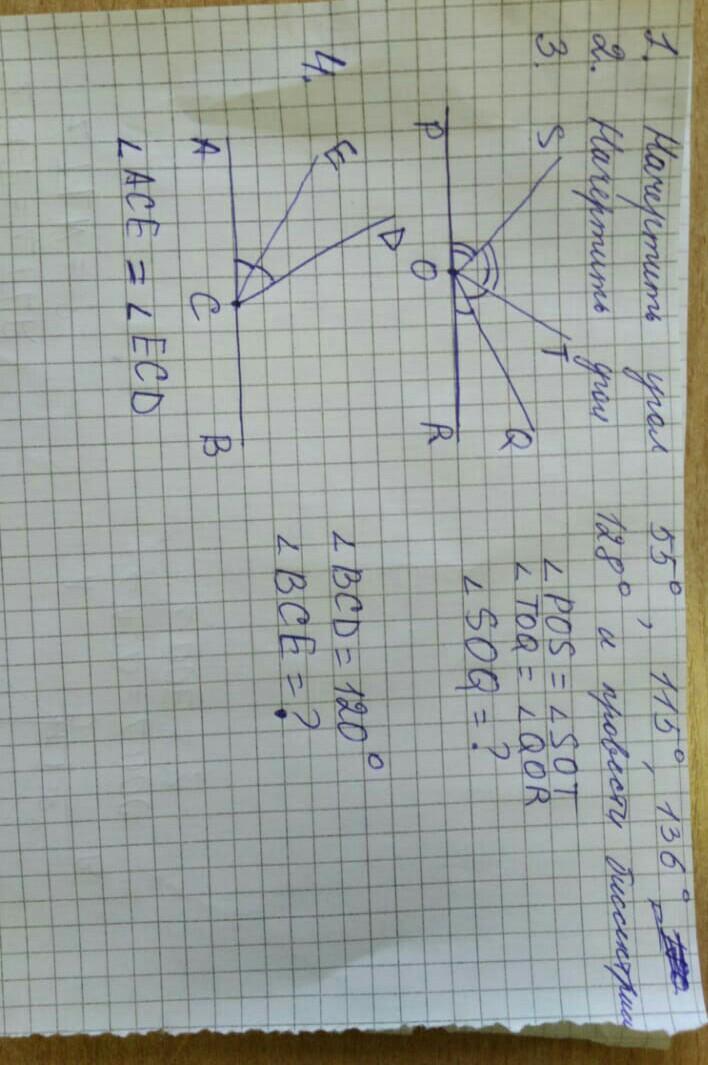 1. Начертить угол 55°, 115°, 136°
2. Начертить угол 128° и провести биссектрису
3.
S
T
Q
P
O
R
∠POS = ∠SOT
∠TOQ = ∠QOR
∠SOQ = ?
4.
E
D
A
C
B
∠BCD = 120°
∠BCE = ?
∠ACE = ∠ECD